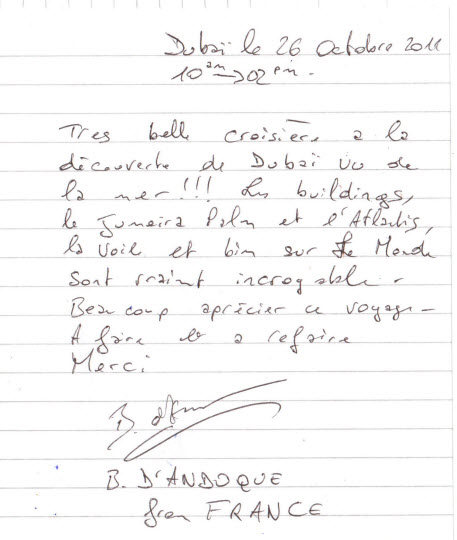 Dubaï le 26 Octobre 2011
10 am → 02 pm -
Tres belle croisière a la
découverte de Dubaï vu de
la mer!!! Les buildings,
le Jumeira Palm et l'Atlantis,
la Voile et bien sur Le Monde
sont vraiment incroyable -
Beaucoup aprécier ce voyage -
A faire et a refaire
Merci
B. D'ANDOQUE
from FRANCE